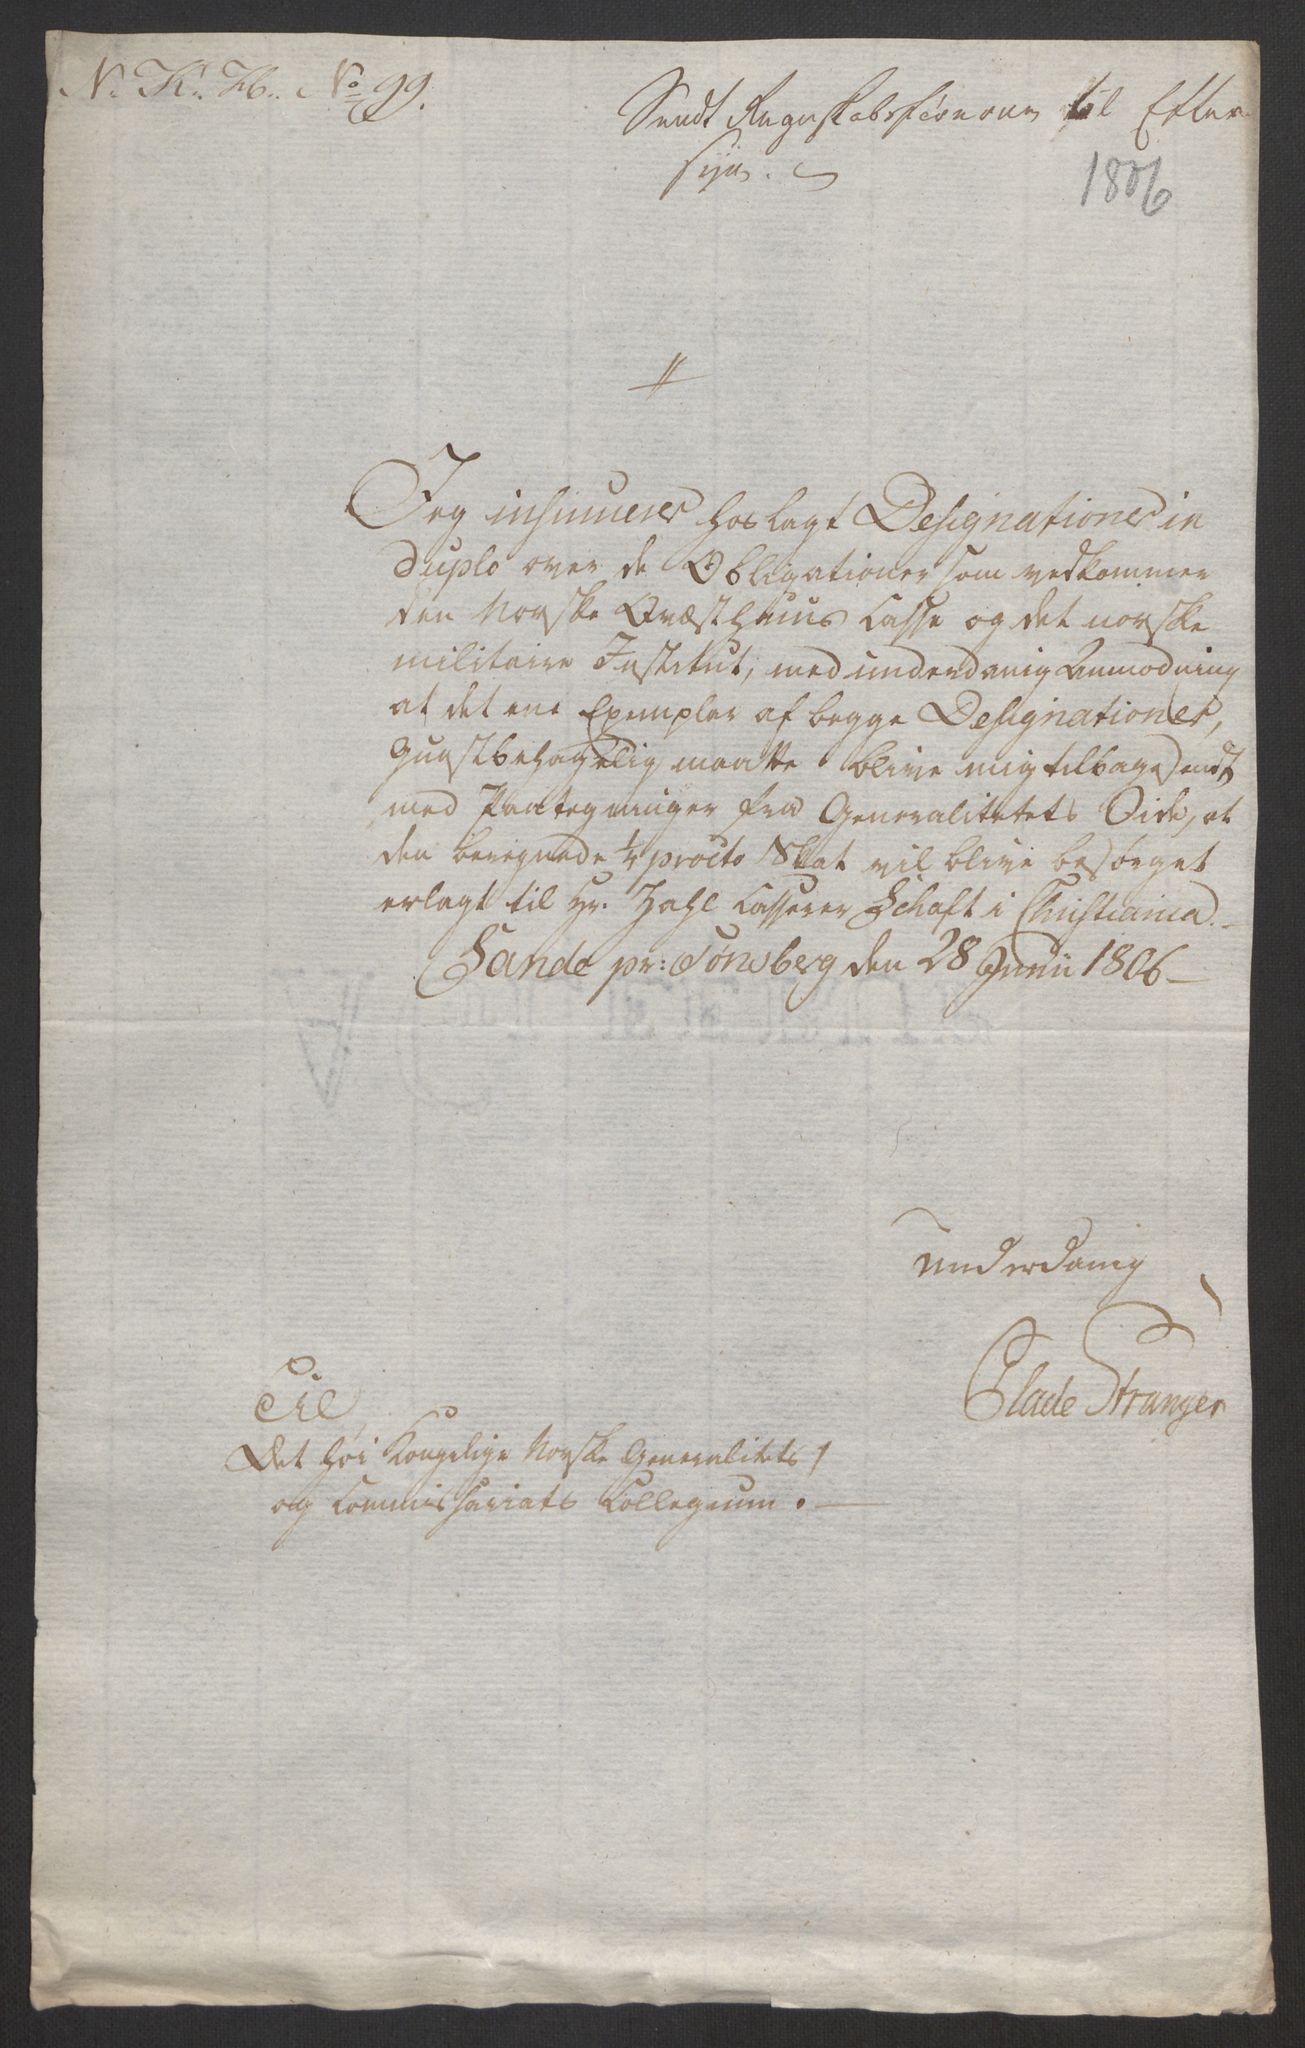 N. K. H. No 99.
Sendt Regnskabsføreren til Efter
syn.
1806
Jeg insinuerer hoslagt Designationer in
duplo over de Obligationer som vedkommer
den Norske Qvæsthuus Casse og det norske
militaire Institut, med underdanig Anmodning
at det ene Exemplar af begge Designationer,
gunstbehagelig maatte blive mig tilbagesendt,
med Paategninger fra Generalitetets Side, at
den beregnede 1/4 procto Skat vil blive besørget
erlagt til Hr. Zahl Casserer Schaft i Christiania.
Sande pr: Tønsberg den 28 Junii 1806
underdanig
Glade Stranger
Til
Det høi Kongelige Norske Generalitets
og Commissariats Collegium.